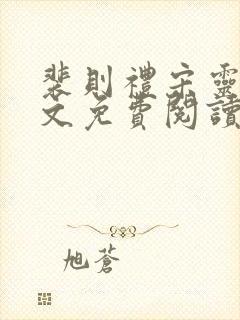 裴則禮宋靈
文免費閱讀
旭蒼